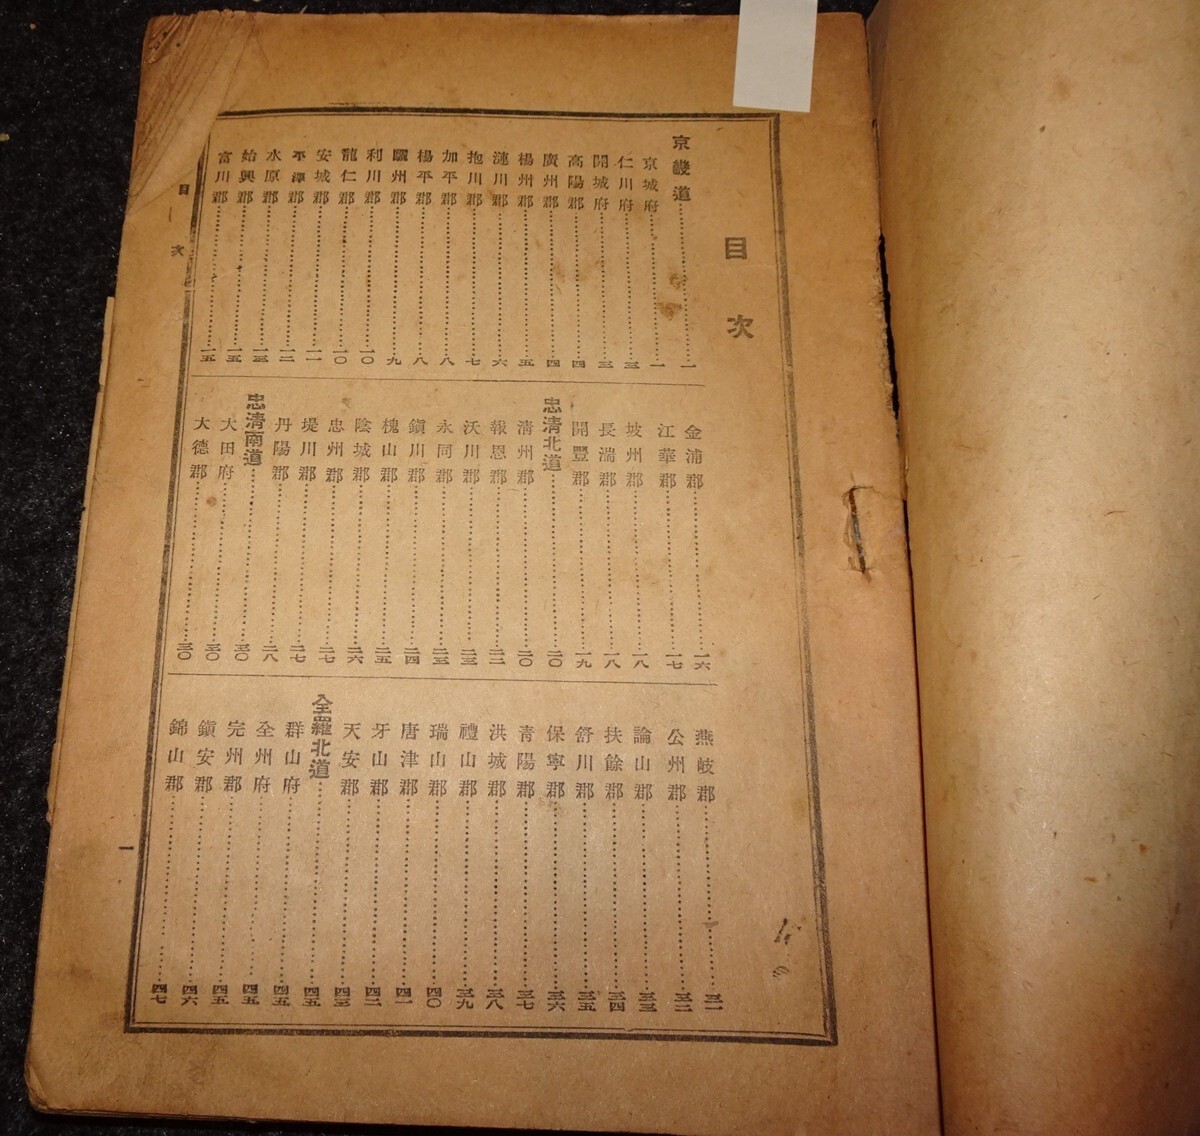 目次
京畿道…………一
京城府…………一
仁川府…………三
開城府…………三
高陽郡…………四
廣州郡…………四
楊州郡…………五
漣川郡…………六
抱川郡…………七
加平郡…………八
楊平郡…………八
驪州郡…………九
利川郡…………一〇
龍仁郡…………一〇
安城郡…………一一
平澤郡…………一二
水原郡…………一三
始興郡…………一五
富川郡…………一五
金浦郡…………一六
江華郡…………一七
坡州郡…………一八
長湍郡…………一八
開豐郡…………一九
忠清北道…………二〇
淸州郡…………二〇
報恩郡…………二二
沃川郡…………二三
永同郡…………二三
鎭川郡…………二四
槐山郡…………二五
陰城郡…………二六
忠州郡…………二七
堤川郡…………二七
丹陽郡…………二八
忠清南道…………三〇
大田府…………三〇
大德郡…………三〇
燕岐郡…………三一
公州郡…………三二
論山郡…………三三
扶餘郡…………三四
舒川郡…………三五
保寧郡…………三六
靑陽郡…………三七
洪城郡…………三八
禮山郡…………三九
瑞山郡…………四〇
唐津郡…………四一
牙山郡…………四二
天安郡…………四三
全羅北道…………四五
群山府…………四五
全州府…………四五
完州郡…………四五
鎭安郡…………四六
錦山郡…………四七
目次
一